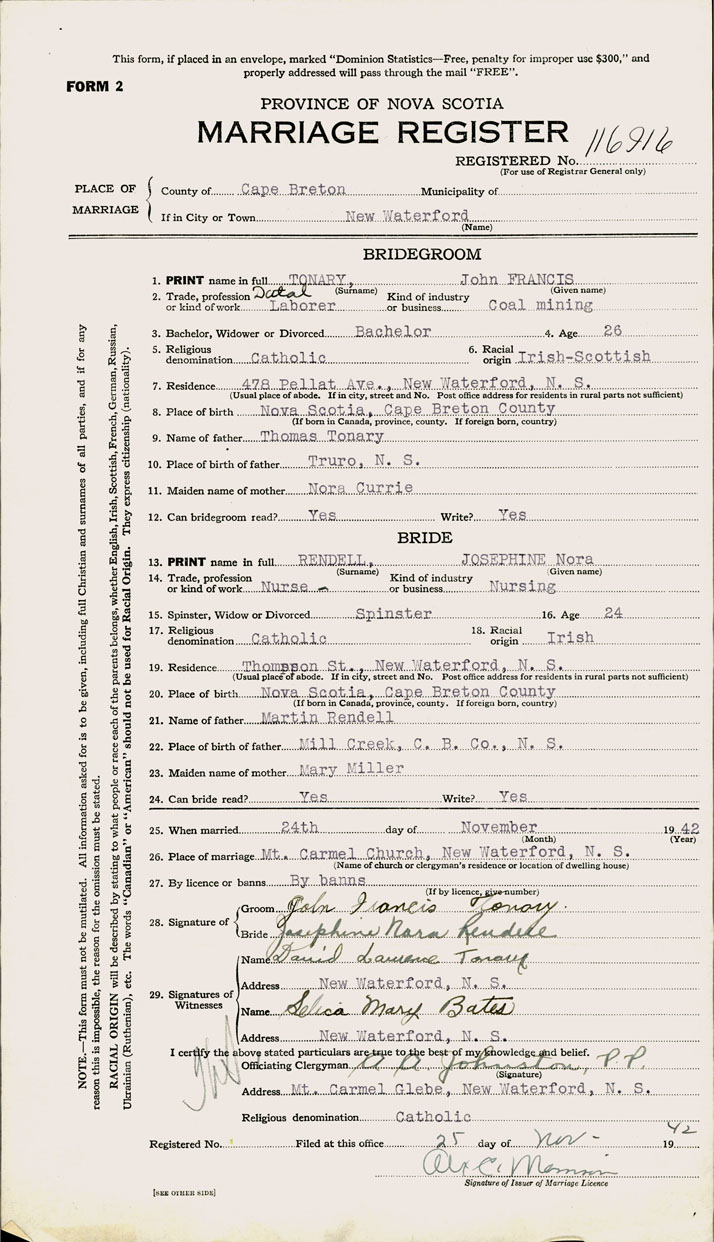 This form, if placed in an envelope, marked “Dominion Statistics—Free, penalty for improper use $300,” and
properly addressed will pass through the mail “FREE”.
FORM 2
PROVINCE OF NOVA SCOTIA
MARRIAGE REGISTER
REGISTERED No. 116916
(For use of Registrar General only)
PLACE OF MARRIAGE
County of Cape Breton Municipality of
If in City or Town New Waterford
(Name)
BRIDEGROOM
1. PRINT name in full TONARY, John FRANCIS
(Surname) (Given name)
2. Trade, profession or kind of work Datal Laborer Kind of industry or business Coal mining
3. Bachelor, Widower or Divorced Bachelor 4. Age 26
5. Religious denomination Catholic 6. Racial origin Irish-Scottish
7. Residence 478 Pellat Ave., New Waterford, N. S.
(Usual place of abode. If in city, street and No. Post office address for residents in rural parts not sufficient)
8. Place of birth Nova Scotia, Cape Breton County
(If born in Canada, province, county. If foreign born, country)
9. Name of father Thomas Tonary
10. Place of birth of father Truro, N. S.
11. Maiden name of mother Nora Currie
12. Can bridegroom read? Yes Write? Yes
BRIDE
13. PRINT name in full RENDELL, JOSEPHINE Nora
(Surname) (Given name)
14. Trade, profession or kind of work Nurse - Kind of industry or business Nursing
15. Spinster, Widow or Divorced Spinster 16. Age 24
17. Religious denomination Catholic 18. Racial origin Irish
19. Residence Thompson St., New Waterford, N. S.
(Usual place of abode. If in city, street and No. Post office address for residents in rural parts not sufficient)
20. Place of birth Nova Scotia, Cape Breton County
(If born in Canada, province, county. If foreign born, country)
21. Name of father Martin Rendell
22. Place of birth of father Mill Creek, C. B. Co., N. S.
23. Maiden name of mother Mary Miller
24. Can bride read? Yes Write? Yes
25. When married 24th day of November 1942
(Month) (Year)
26. Place of marriage Mt. Carmel Church, New Waterford, N. S.
(Name of church or clergyman's residence or location of dwelling house)
27. By licence or banns By banns
(If by licence, give number)
28. Signature of
Groom John Francis Tonary.
Bride Josephine Nora Rendell
29. Signatures of Witnesses
Name David Lawrence Tonary
Address New Waterford, N. S.
Name Selica Mary Bates
Address New Waterford, N. S.
I certify the above stated particulars are true to the best of my knowledge and belief.
Officiating Clergyman A A Johnston, P.P.
(Signature)
Address Mt. Carmel Glebe, New Waterford, N. S.
Religious denomination Catholic
Registered No. Filed at this office 25 day of Nov - 1942
Signature of Issuer of Marriage Licence
[SEE OTHER SIDE]
NOTE.—This form must not be mutilated. All information asked for is to be given, including full Christian and surnames of all parties, and if for any
reason this is impossible, the reason for the omission must be stated.
RACIAL ORIGIN will be described by stating to what people or race each of the parents belongs, whether English, Irish, Scottish, French, German, Russian,
Ukrainian (Ruthenian), etc. The words “Canadian” or “American” should not be used for Racial Origin. They express citizenship (nationality).